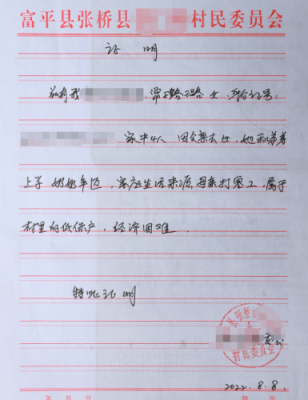 富平县张桥县 村民委员会
证明
兹有我 女,身份证号:
家中4人 因父亲去世,她和弟弟
上学 奶奶年迈,家庭生活来源母亲打零工,属于
村里的低保户,经济困难。
特此证明
村民委员会
2022.8.8.